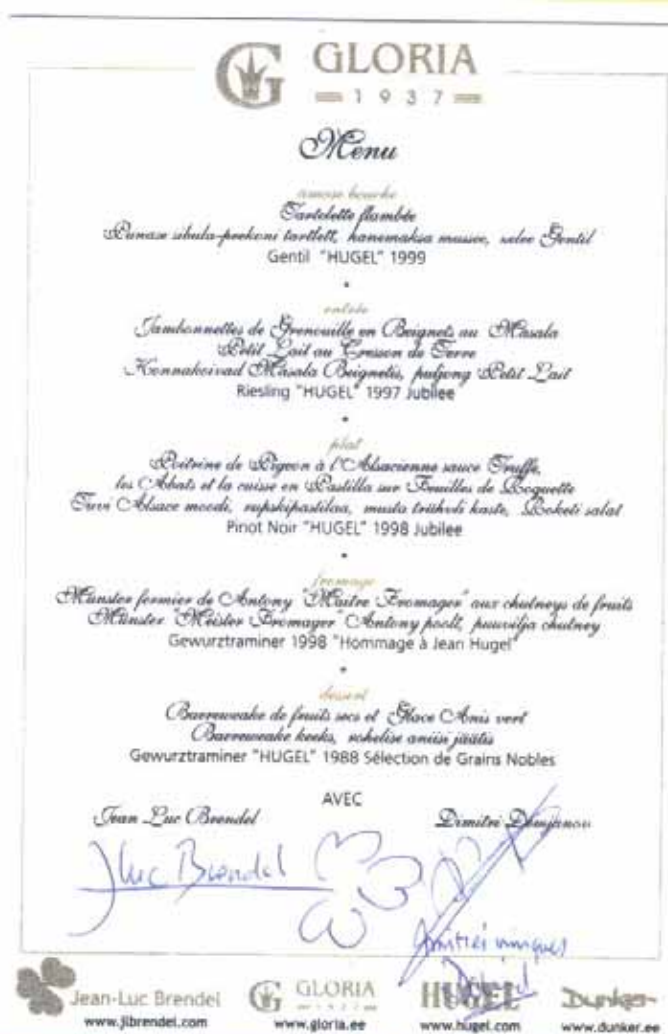 G GLORIA
1937
Menu
amuse bouche
Tartelette flambée
Punase sibula-peekoni tartlett, hanemaksa mussee, selee Gentil
Gentil "HUGEL" 1999
entrée
Jambonnettes de Grenouille en Beignets au Masala
Petit Lait au Cresson de Terre
Konnakoivad Masala Beignetis, puljong Petit Lait
Riesling "HUGEL" 1997 Jubilee
plat
Poitrine de Pigeon à l'Alsacienne sauce Truffe,
les Abats et la cuisse en Pastilla sur Feuilles de Roquette
Tuvi Alsace moodi, rupskipastilaa, musta trühvli kaste, Roketi salat
Pinot Noir "HUGEL" 1998 Jubilee
fromage
Münster fermier de Antony "Maitre Fromager" aux chutneys de fruits
Münster "Meister Fromager" Antony poolt, puuvilja chutney
Gewurztraminer 1998 "Hommage à Jean Hugel"
dessert
Baereweake de fruits secs et Glace Anis vert
Baereweake keeks, rohelise aniisi jäätis
Gewurztraminer "HUGEL" 1988 Sélection de Grains Nobles
AVEC
Jean Luc Brendel Dimitri Demjanov
JLuc Brendel
Jean-Luc Brendel G GLORIA 1937 HUGEL Dunker
www.jlbrendel.com www.gloria.ee www.hugel.com www.dunker.ee